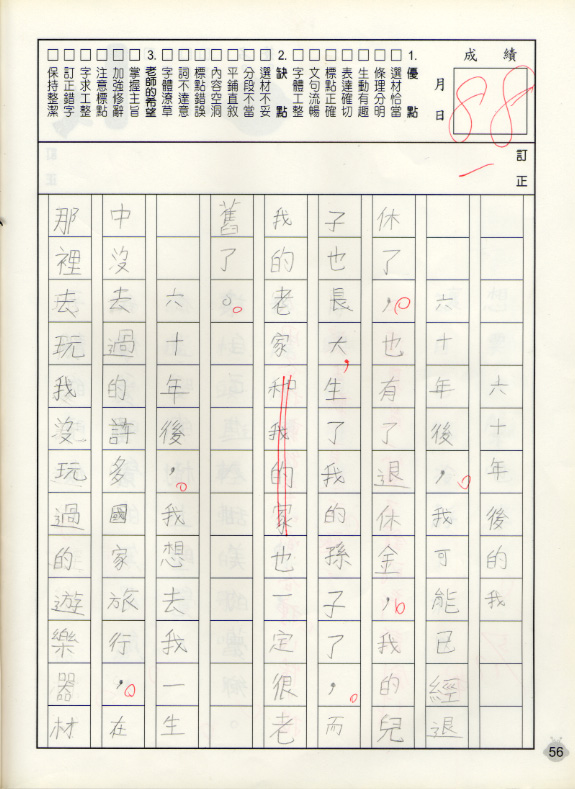 成績
月 日
88
1. 優點
□選材恰當
□條理分明
□生動有趣
□表達確切
□標點正確
□文句流暢
□字體工整
2. 缺點
□選材不妥
□分段不當
□平鋪直敘
□內容空洞
□標點錯誤
□詞不達意
□字體潦草
3. 老師的希望
□掌握主旨
□加強修辭
□注意標點
□字求工整
□訂正錯字
□保持整潔
訂正
六十年後的我
六十年後,我可能已經退
休了,也有了退休金,我的兒
子也長大,生了我的孫子了,而
我的老家种我的家也一定很老
舊了。
六十年後,我想去我一生
中沒去過的許多國家旅行,在
那裡去玩我沒玩過的遊樂器材
56